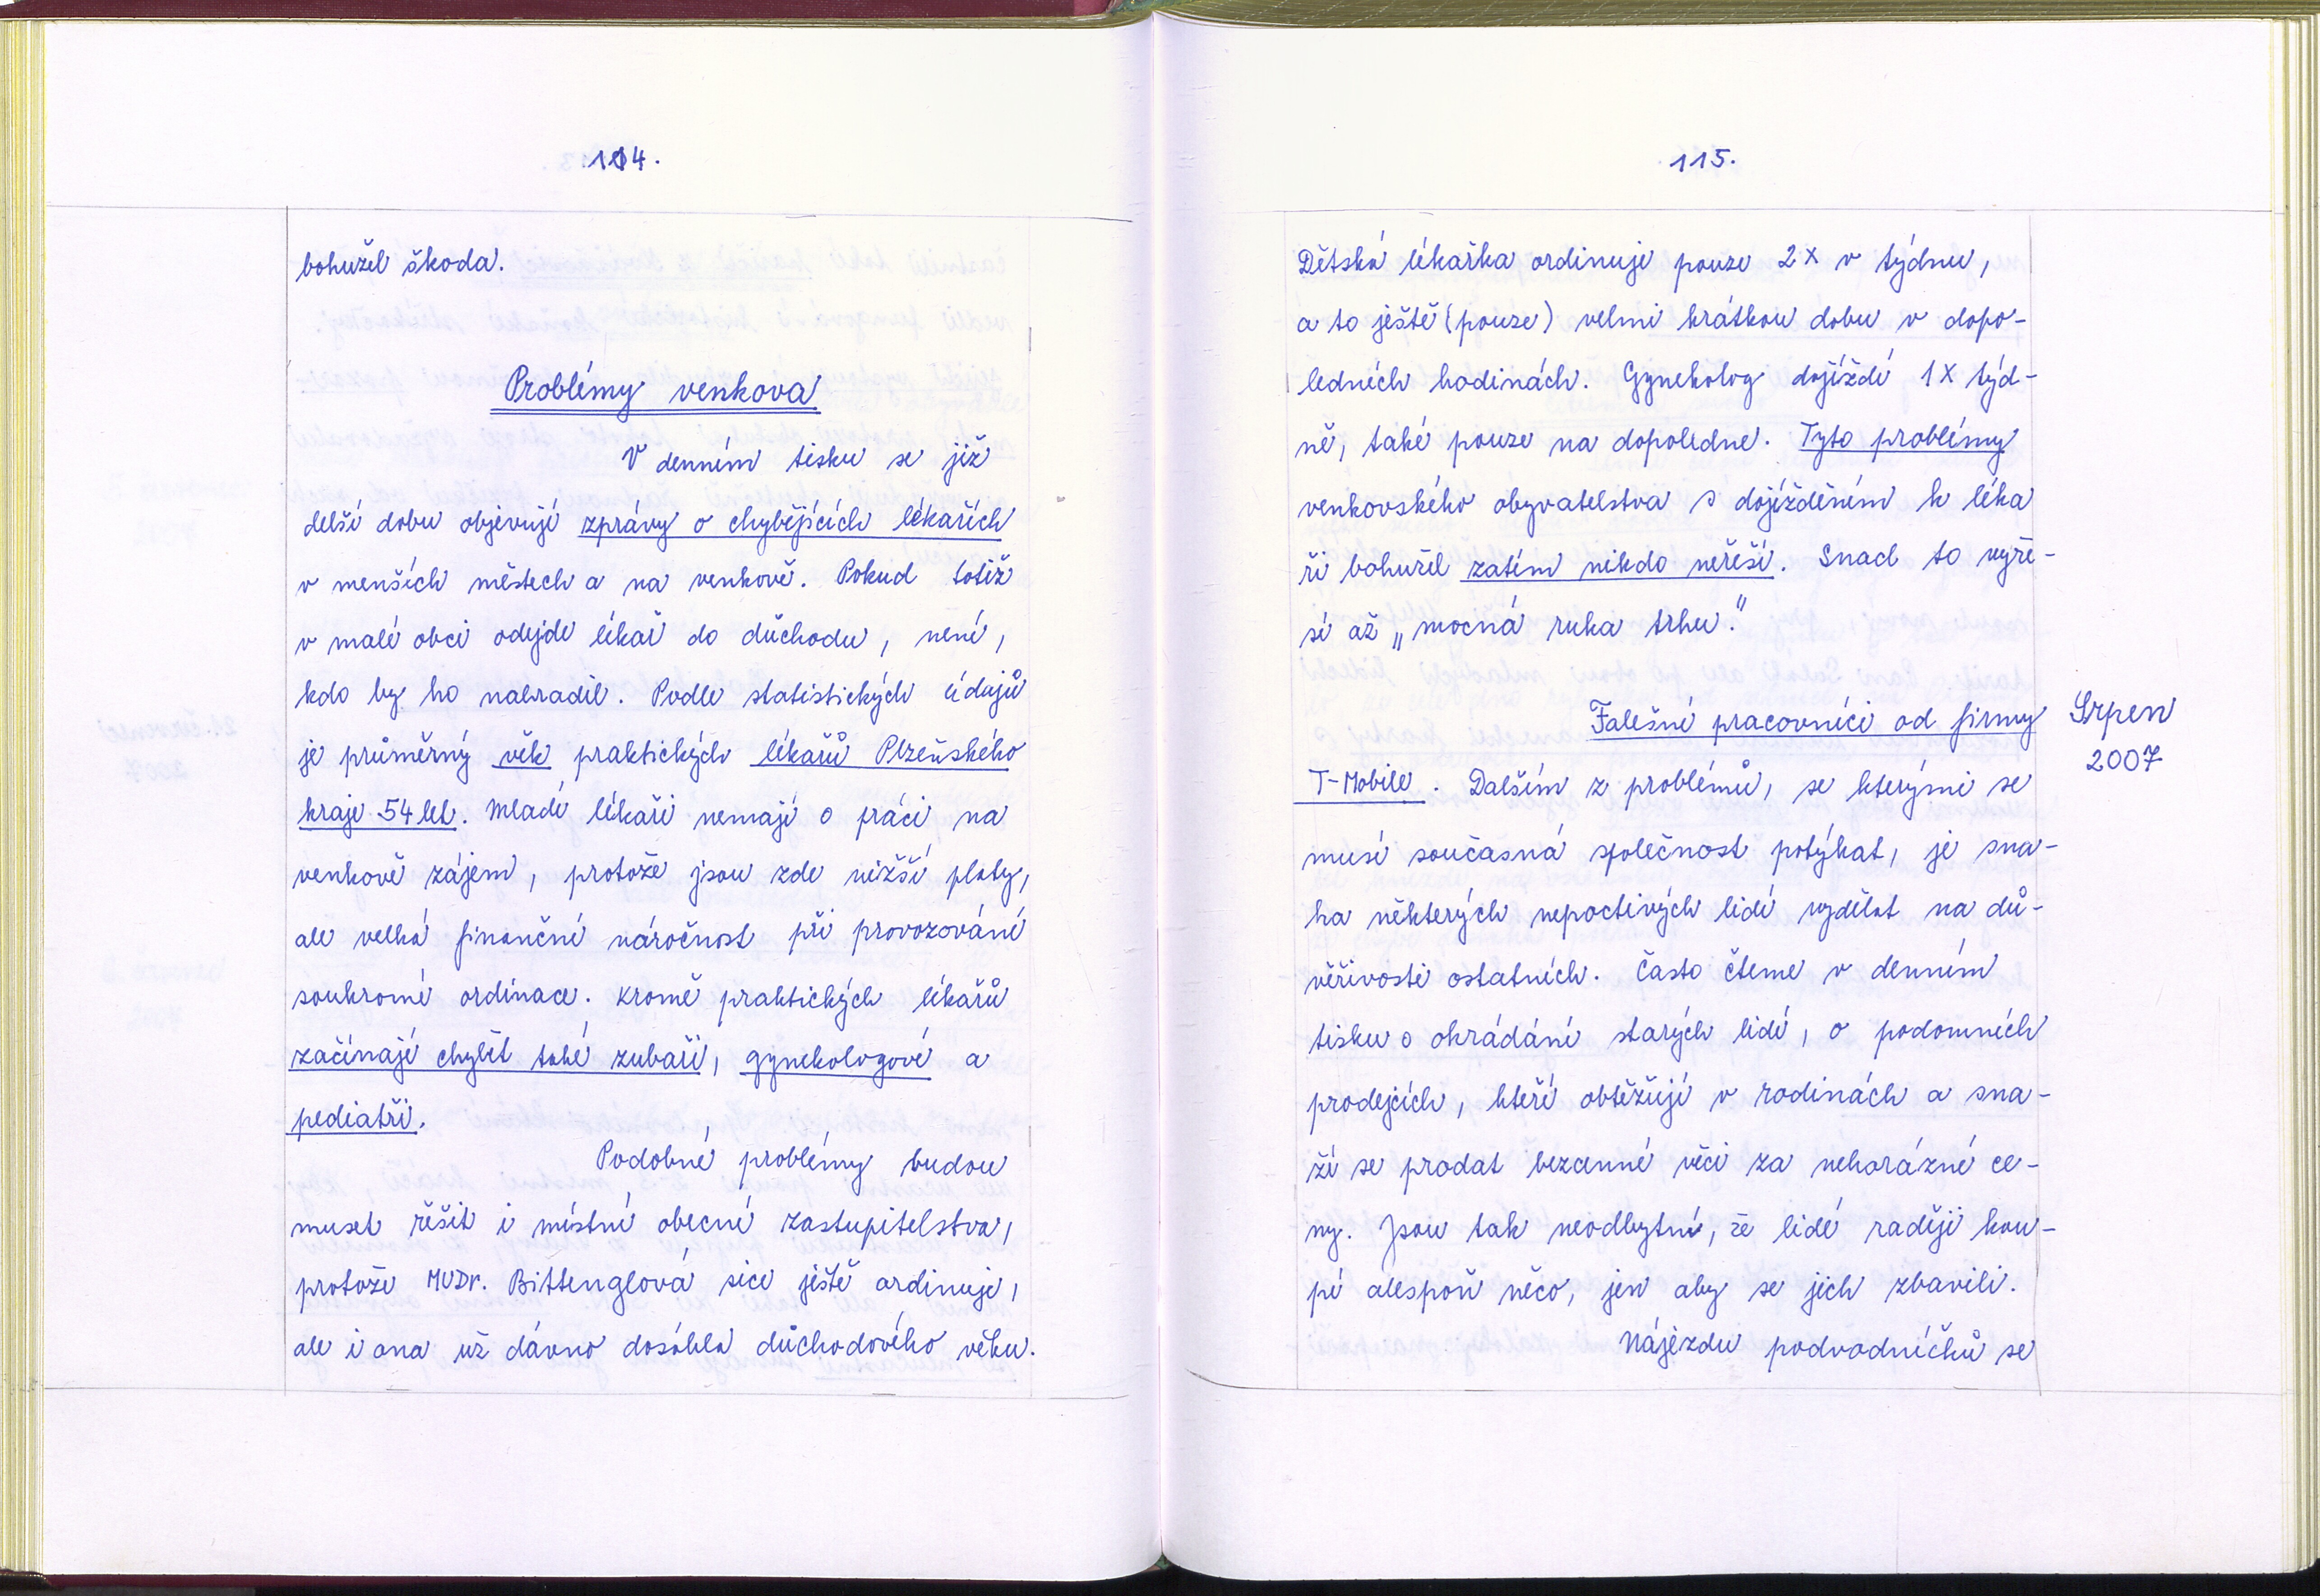 114.
bohužel škoda.
Problémy venkova
V denním tisku se již
delší dobu objevují zprávy o chybějících lékařích
v menších městech a na venkově. Pokud totiž
v malé obci odejde lékař do důchodu, není,
kdo by ho nahradil. Podle statistických údajů
je průměrný věk praktických lékařů Plzeňského
kraje 54 let. Mladí lékaři nemají o práci na
venkově zájem, protože jsou zde nižší platy,
ale velká finanční náročnost při provozování
soukromé ordinace. Kromě praktických lékařů
začínají chybět také zubaři, gynekologové a
pediatři.
Podobné problémy budou
muset řešit i místní obecné zastupitelstva,
protože MUDr. Bittenglová sice ještě ordinuje,
ale i ona už dávno dosáhla důchodového věku.
115.
Dětská lékařka ordinuje pouze 2x v týdnu,
a to ještě (pouze) velmi krátkou dobu v dopo-
ledních hodinách. Gynekolog dojíždí 1x týd-
ně, také pouze na dopoledne. Tyto problémy
venkovského obyvatelstva s dojížděním k léka
ři bohužel zatím nikdo neřeší. Snad to vyře-
ší až „mocná ruka trhu."
Falešní pracovníci od firmy
T-Mobile. Dalším z problémů, se kterými se
musí současná společnost potýkat, je sna-
ha některých nepoctivých lidí vydělat na dů-
věřivosti ostatních. Často čteme v denním
tisku o okrádání starých lidí, o podomních
prodejcích, kteří obtěžují v rodinách a sna-
ží se prodat bezcenné věci za nehorázné ce-
ny. Jsou tak neodbytní, že lidé raději kou-
pí alespoň něco, jen aby se jich zbavili.
Nájezdu podvodníčků se
Srpen
2007